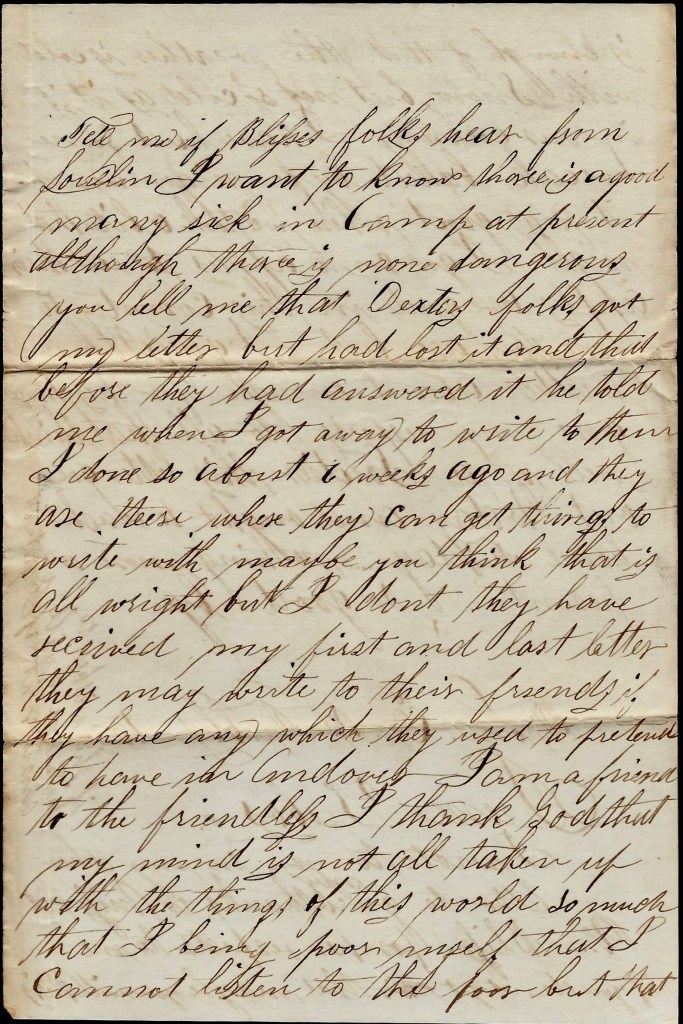 Tell me if Blisses folks hear from
I want to know thare is a good
many sick in Camp at present
allthough thare is none dangerous
you tell me that Dexters folks got
my letter but had lost it and that
before they had answered it he told
me when I got away to write to them
I done so about 6 weeks ago and they
are theese where they can get things to
write with maybe you think that is
all wright but I dont they have
recieved my first and last letter
they may write to their friends if
they have any which they used to pretend
to have in Andover I am a friend
to the friendless I thank God that
my mind is not all taken up
with the things of this world so much
that I being poor myself that I
Cannot listen to the poor but that